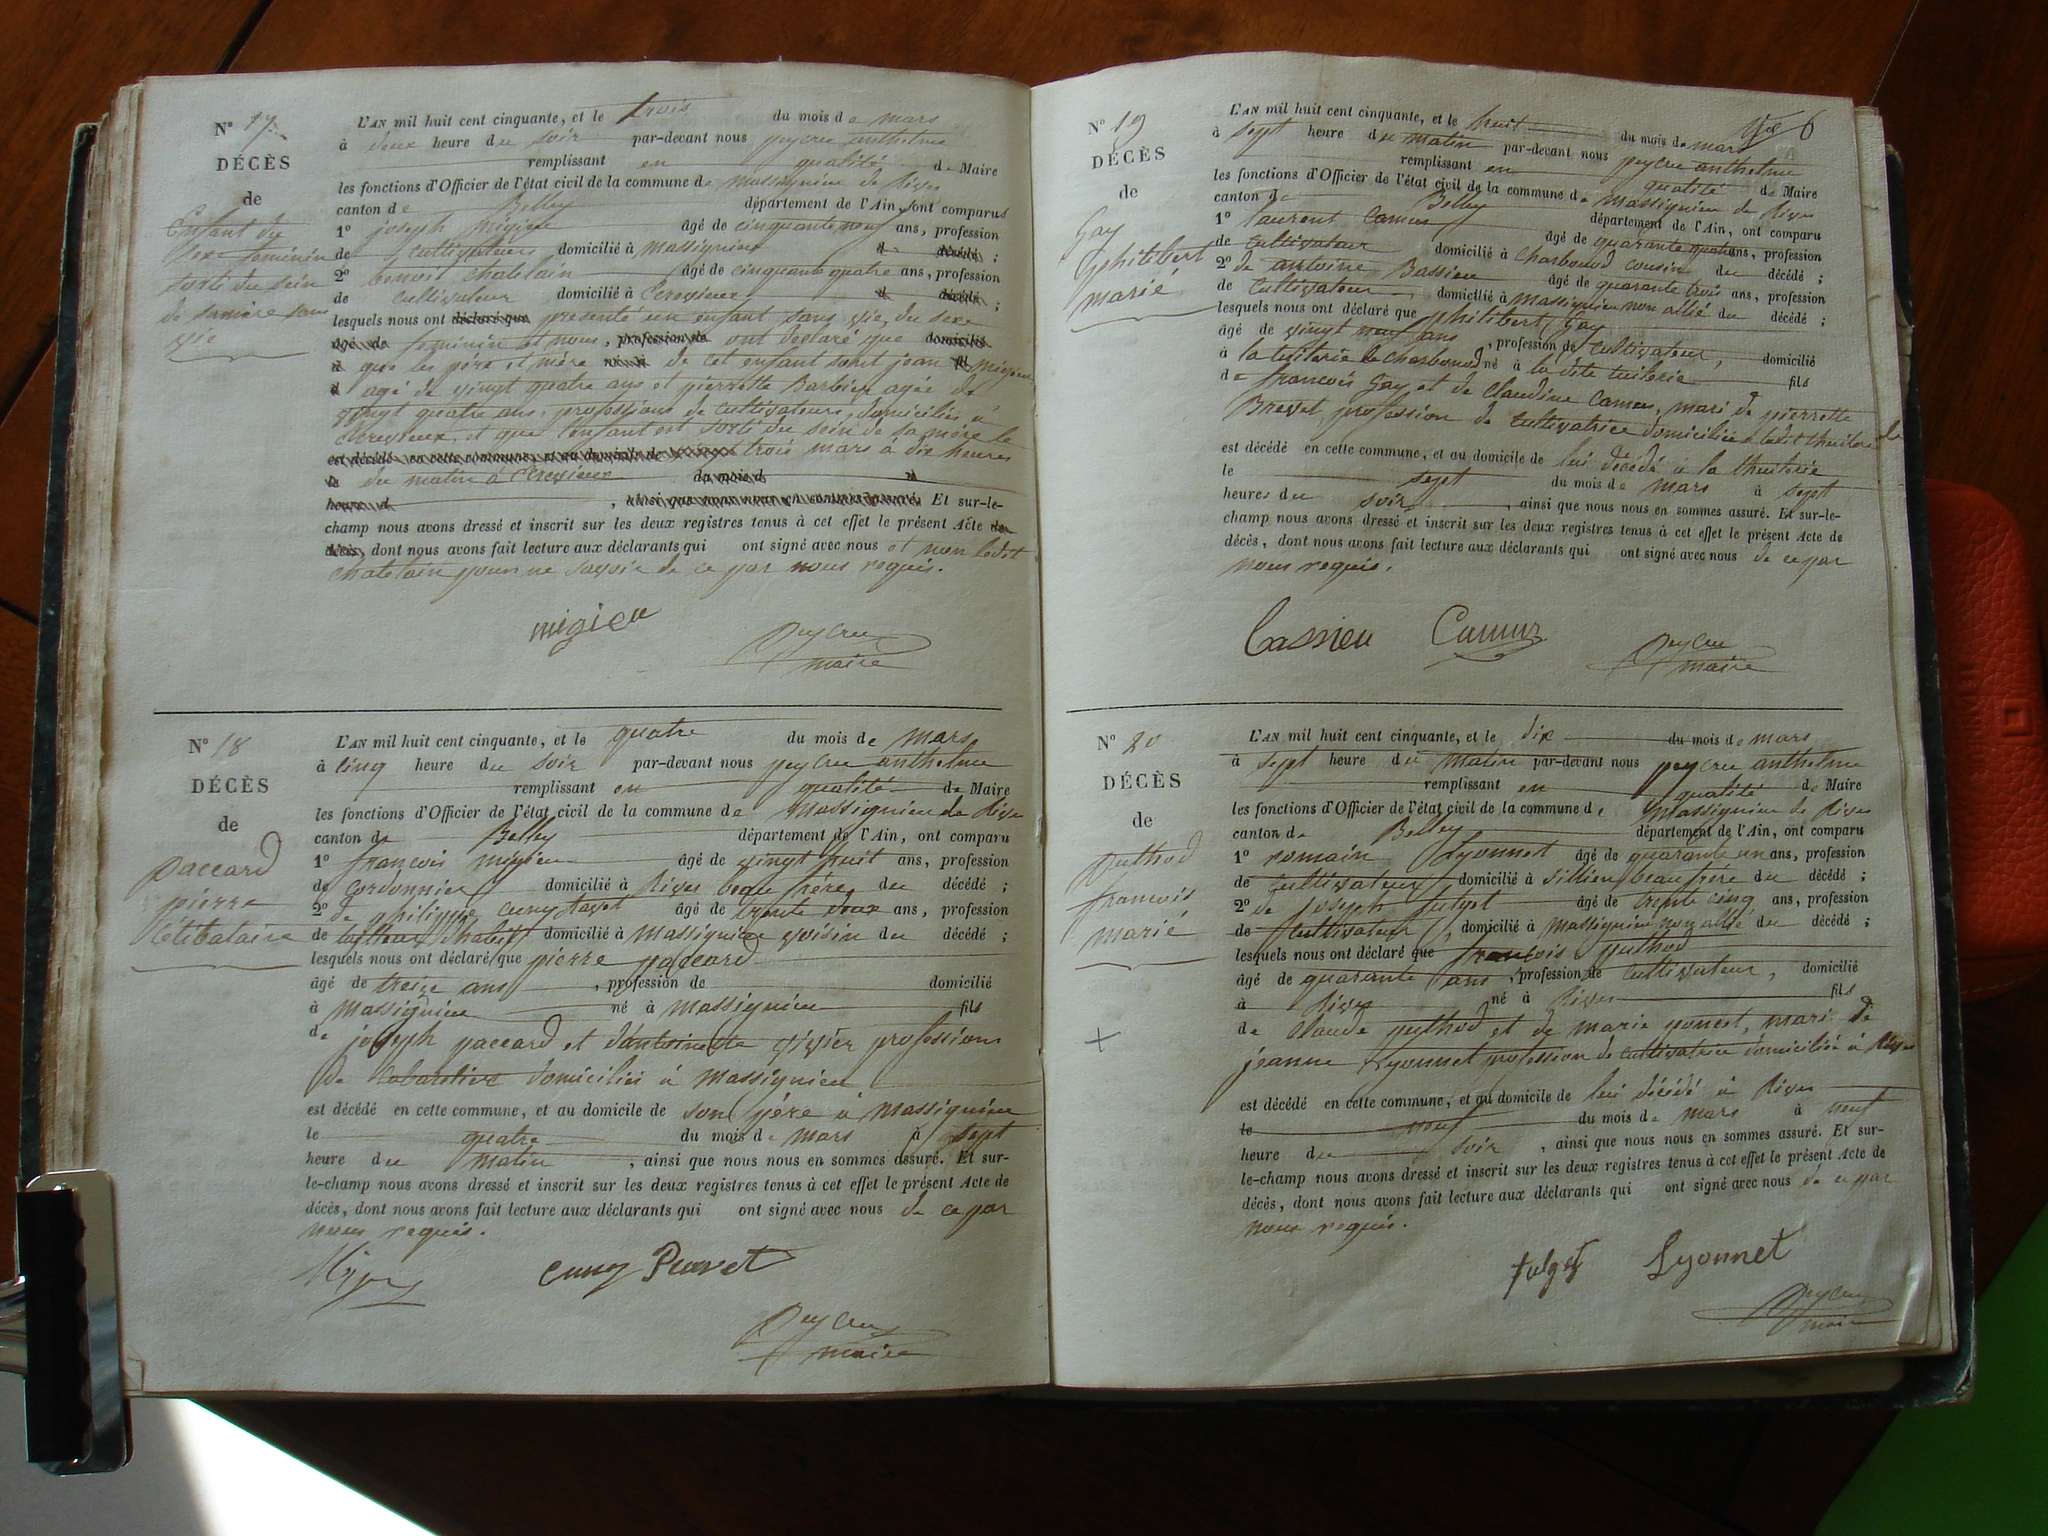 N° 17
DÉCÈS
de
Enfant du
sexe féminin
sorti du sein
de sa mère sans
vie
L'AN mil huit cent cinquante, et le trois du mois de mars
à deux heure du soir par-devant nous peycru anthelme
remplissant en qualité de Maire
les fonctions d'Officier de l'état civil de la commune de Massignieu de Rives
canton de Belley département de l'Ain, sont comparus
1° joseph migieu âgé de cinquante neuf ans, profession
de cultivateur domicilié à massignieu d décédé ;
2° benoit chatelain âgé de cinquante quatre ans, profession
de cultivateur domicilié à d décédé ;
lesquels nous ont déclaré que presenté un enfant sans vie, du sexe
âgé de feminin et nous, profession de ont déclaré que domicilié
à que les père et mère né à de cet enfant sont jean fil migieu
d agé de vingt quatre ans et pierrette Barbier agée de
vingt quatre ans, professions de cultivateurs, domiciliés à
et que l'enfant est sorti du sein de sa mère le
est décédé en cette commune, et au domicile de trois mars à dix heures
le du matin à du mois d à
heure d , ainsi que nous nous en sommes assuré. Et sur-le-
champ nous avons dressé et inscrit sur les deux registres tenus à cet effet le présent Acte de
décès, dont nous avons fait lecture aux déclarants qui ont signé avec nous et non ledit
chatelain pour ne savoir de ce par nous requis.
migieu
Peycru
maire
N° 18
DÉCÈS
de
paccard
pierre
célibataire
L'AN mil huit cent cinquante, et le quatre du mois de mars
à cinq heure du soir par-devant nous peycru anthelme
remplissant en qualité de Maire
les fonctions d'Officier de l'état civil de la commune de Massignieu de Rives
canton de Belley département de l'Ain, ont comparu
1° françois migieu âgé de vingt huit ans, profession
de cordonnier domicilié à Rives beau frère du décédé ;
2° de philippe cuny âgé de trente deux ans, profession
de tailleur d'habits domicilié à Massignieu voisin du décédé ;
lesquels nous ont déclaré que pierre paccard
âgé de treize ans , profession de domicilié
à Massignieu né à Massignieu fils
de joseph paccard et d'antoinette vivier professions
de domiciliés à Massignieu
est décédé en cette commune, et au domicile de son père à Massignieu
le quatre du mois de mars à sept
heure du matin , ainsi que nous nous en sommes assuré. Et sur-
le-champ nous avons dressé et inscrit sur les deux registres tenus à cet effet le présent Acte de
décès, dont nous avons fait lecture aux déclarants qui ont signé avec nous de ce par
nous requis.
cuny
Peycru
maire
6
N° 19
DÉCÈS
de
Gay
philibert
marié
L'AN mil huit cent cinquante, et le huit du mois de mars
à sept heure du matin par-devant nous peycru anthelme
remplissant en qualité de Maire
les fonctions d'Officier de l'état civil de la commune de Massignieu de Rives
canton de Belley département de l'Ain, ont comparu
1° laurent camus âgé de quarante quatre ans, profession
de cultivateur domicilié à Charbonod cousin du décédé ;
2° de antoine Bassieu âgé de quarante trois ans, profession
de cultivateur domicilié à Massignieu non allié du décédé ;
lesquels nous ont déclaré que philibert Gay
âgé de vingt neuf ans , profession de cultivateur, domicilié
à la tuilerie de charbonod né à la dite tuilerie fils
de françois Gay et de Claudine camus, mari de pierrette
Brevet, profession de cultivatrice domiciliée à
est décédé en cette commune, et au domicile de lui décédé à la thuilerie
le sept du mois de mars à sept
heures du soir , ainsi que nous nous en sommes assuré. Et sur-le-
champ nous avons dressé et inscrit sur les deux registres tenus à cet effet le présent Acte de
décès, dont nous avons fait lecture aux déclarants qui ont signé avec nous de ce par
nous requis.
bassieu Camus
Peycru
maire
N° 20
DÉCÈS
de
puthod
francois
marié
+
L'AN mil huit cent cinquante, et le dix du mois de mars
à sept heure du matin par-devant nous peycru anthelme
remplissant en qualité de Maire
les fonctions d'Officier de l'état civil de la commune de Massignieu de Rives
canton de Belley département de l'Ain, ont comparu
1° romain Lyonnet âgé de quarante un ans, profession
de cultivateur domicilié à Sillieu beau frere du décédé ;
2° de joseph âgé de trente cinq ans, profession
de cultivateur, domicilié à Massignieu non allié du décédé ;
lesquels nous ont déclaré que francois puthod
âgé de quarante ans , profession de cultivateur, domicilié
à Rives né à Rives fils
de Claude puthod et de marie ponest, mari de
jeanne Lyonnet profession de cultivatrice domiciliée à Rives
est décédé en cette commune, et au domicile de lui décédé à Rives
le neuf du mois de mars à neuf
heure du soir , ainsi que nous nous en sommes assuré. Et sur-
le-champ nous avons dressé et inscrit sur les deux registres tenus à cet effet le présent Acte de
décès, dont nous avons fait lecture aux déclarants qui ont signé avec nous de ce par
nous requis.
Lyonnet
Peycru
maire